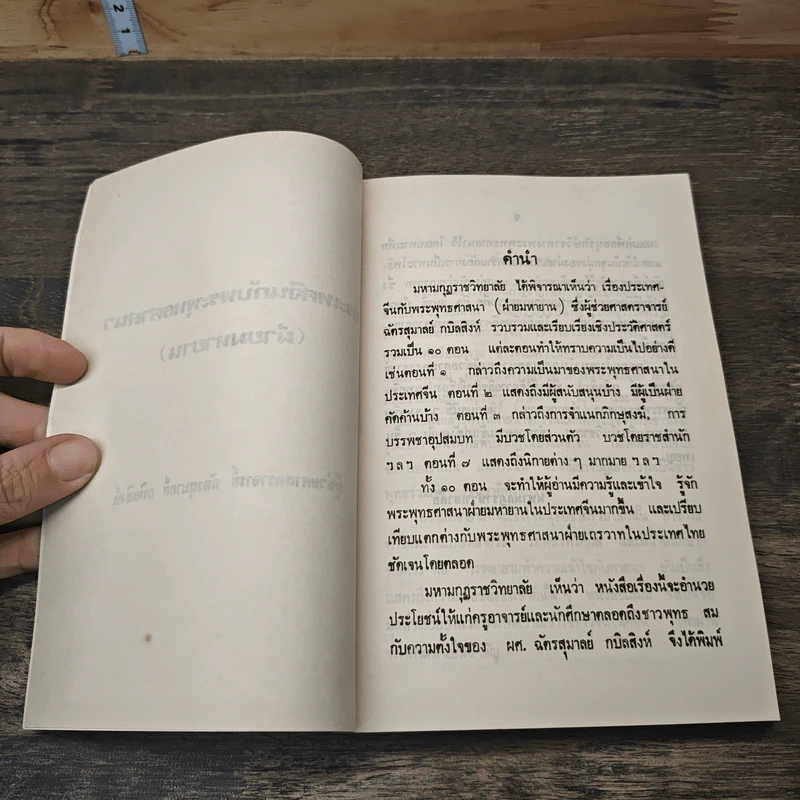 2
1
คำนำ
มหามกุฏราชวิทยาลัย ได้พิจารณาเห็นว่า เรื่องประเทศ-
จีนกับพระพุทธศาสนา (ฝ่ายมหายาน) ซึ่งผู้ช่วยศาสตราจารย์
ฉัตรสุมาลย์ กบิลสิงห์ รวบรวมและเรียบเรียงเชิงประวัติศาสตร์
รวมเป็น ๑๐ ตอน แต่ละตอนทำให้ทราบความเป็นไปอย่างดี
เช่นตอนที่ ๑ กล่าวถึงความเป็นมาของพระพุทธศาสนาใน
ประเทศจีน ตอนที่ ๒ แสดงถึงมีผู้สนับสนุนบ้าง มีผู้เป็นฝ่าย
คัดค้านบ้าง ตอนที่ ๓ กล่าวถึงการจำแนกภิกษุสงฆ์, การ
บรรพชาอุปสมบท มีบวชโดยส่วนตัว บวชโดยราชสำนัก
ฯลฯ ตอนที่ ๗ แสดงถึงนิกายต่าง ๆ มากมาย ฯลฯ
ทั้ง ๑๐ ตอน จะทำให้ผู้อ่านมีความรู้และเข้าใจ รู้จัก
พระพุทธศาสนาฝ่ายมหายานในประเทศจีนมากขึ้น และเปรียบ
เทียบแตกต่างกับพระพุทธศาสนาฝ่ายเถรวาทในประเทศไทย
ชัดเจนโดยตลอด
มหามกุฏราชวิทยาลัย เห็นว่า หนังสือเรื่องนี้จะอำนวย
ประโยชน์ให้แก่ครูอาจารย์และนักศึกษาตลอดถึงชาวพุทธ สม
กับความตั้งใจของ ผศ. ฉัตรสุมาลย์ กบิลสิงห์ จึงได้พิมพ์